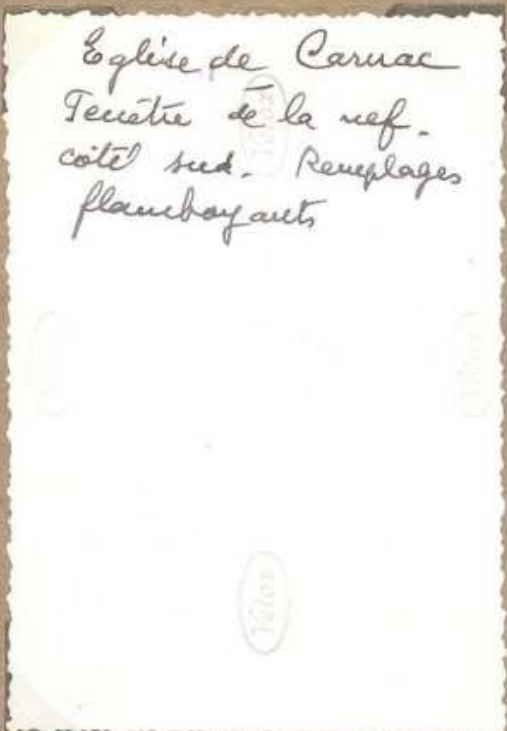 Eglise de Carnac
Fenêtre de la nef.
côté sud. Remplages
flamboyants
Velox
Velox
Velox